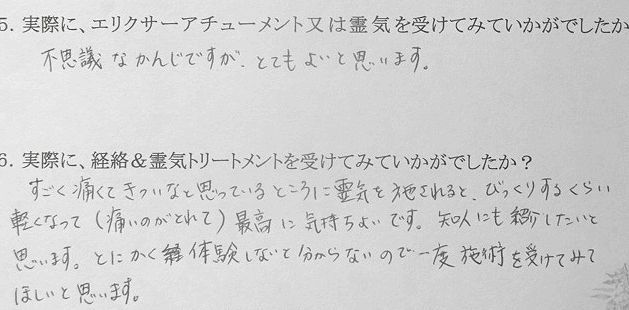 5. 実際に、エリクサーアチューメント又は霊気を受けてみていかがでしたか
不思議なかんじですが、とてもよいと思います。
6. 実際に、経絡&霊気トリートメントを受けてみていかがでしたか?
すごく痛くてきついなと思っているところに霊気を施されると、びっくりするくらい
軽くなって(痛いのがとれて)最高に気持ちよいです。知人にも紹介したいと
思います。とにかく体験しないと分からないので一度施術を受けてみて
ほしいと思います。